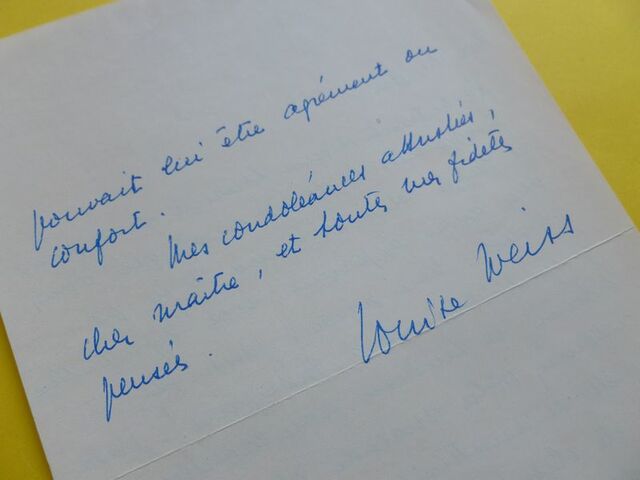 pouvait lui être agrément ou
confort.
Mes condoléances attristées,
cher maître, et toutes mes fidèles
pensées.
Louise Weiss